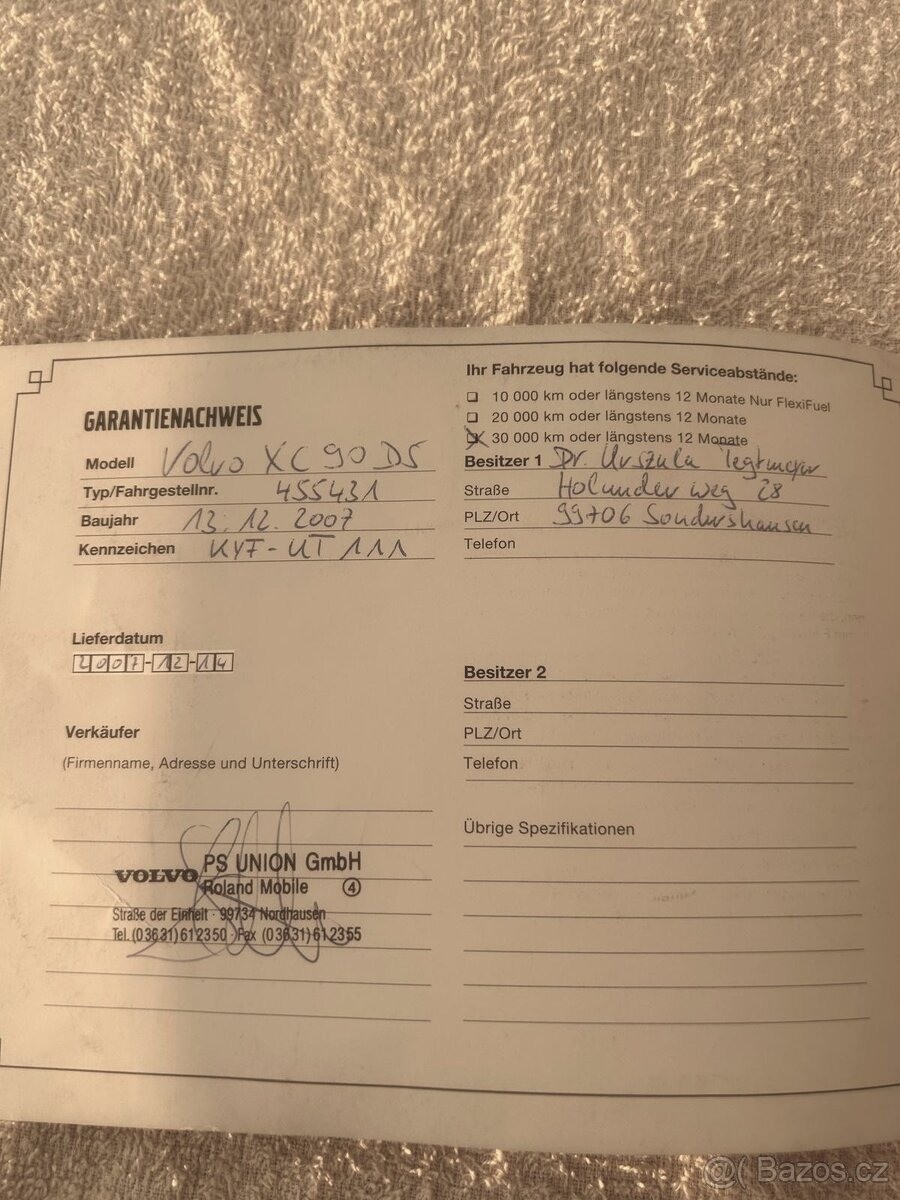 GARANTIENACHWEIS
Modell Volvo XC90 D5
Typ/Fahrgestellnr. 455431
Baujahr 13.12.2007
Kennzeichen KYF-UT 111
Lieferdatum
2007-12-14
Verkäufer
(Firmenname, Adresse und Unterschrift)
VOLVO PS UNION GmbH
Roland Mobile 4
Straße der Einheit · 99734 Nordhausen
Tel. (03631) 612350 · Fax (03631) 612355
Ihr Fahrzeug hat folgende Serviceabstände:
10 000 km oder längstens 12 Monate Nur FlexiFuel
20 000 km oder längstens 12 Monate
30 000 km oder längstens 12 Monate
Besitzer 1 Dr. Urszula Tegtmeyer
Straße Holunderweg 28
PLZ/Ort 99706 Sondershausen
Telefon
Besitzer 2
Straße
PLZ/Ort
Telefon
Übrige Spezifikationen
@( Bazos.cz